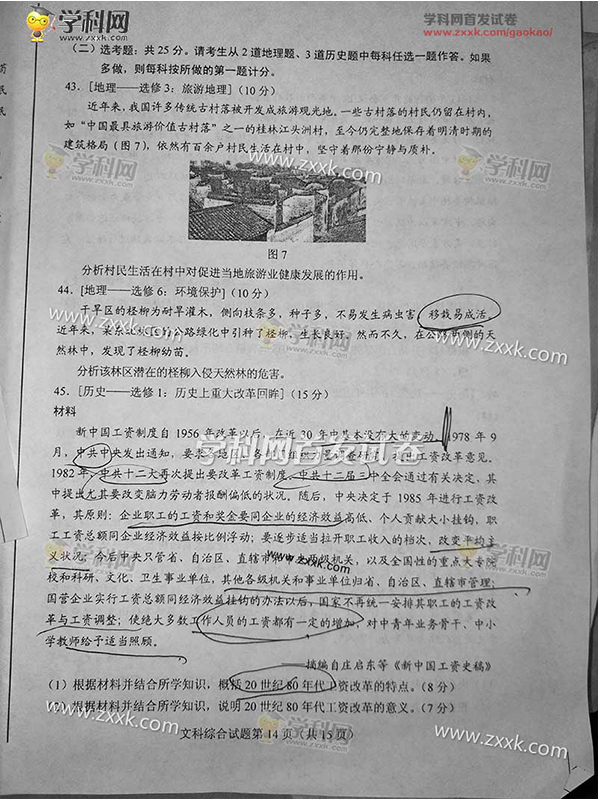 学科网 ZXXK.COM
学科网首发试卷
www.zxxk.com/gaokao/
(二)选考题:共25分。请考生从2道地理题、3道历史题中每科任选一题作答。如果
多做,则每科按所做的第一题计分。
43. [地理——选修3:旅游地理](10分)
近年来,我国许多传统古村落被开发成旅游观光地。一些古村落的村民仍留在村内,
如“中国最具旅游价值古村落”之一的桂林江头洲村,至今仍完整地保存着明清时期的
建筑格局(图7),依然有百余户村民生活在村中,坚守着那份宁静与质朴。
图7
分析村民生活在村中对促进当地旅游业健康发展的作用。
44. [地理——选修6:环境保护](10分)
干旱区的柽柳为耐旱灌木,侧向枝条多,种子多,不易发生病虫害,移栽易成活。
近年来,某东北林区的公路绿化中引种了柽柳,生长良好。然而不久,在公路两侧的天
然林中,发现了柽柳幼苗。
分析该林区潜在的柽柳入侵天然林的危害。
45. [历史——选修1:历史上重大改革回眸](15分)
材料
新中国工资制度自1956年改革以后,在近30年中基本没有大的变动。1978年9
月,中共中央发出通知,要求 工资改革意见。
1982年,中共十二大再次提出要改革工资制度。中共十二届三中全会通过有关决定,其
中提出尤其要改变脑力劳动者报酬偏低的状况。随后,中央决定于1985年进行工资改
革,其原则:企业职工的工资和奖金要同企业的经济效益高低、个人贡献大小挂钩,职
工工资总额同企业经济效益按比例浮动;要逐步适当拉开职工收入的档次,改变平均主
义状况;今后中央只管省、自治区、直辖市 两级机关,以及全国性的重点大专院
校和科研、文化、卫生事业单位,其他各级机关和事业单位归省、自治区、直辖市管理;
国营企业实行工资总额同经济效益挂钩的办法以后,国家不再统一安排其职工的工资改
革与工资调整;使绝大多数工作人员的工资都有一定的增加,对中青年业务骨干、中小
学教师给予适当照顾。
——摘编自庄启东等《新中国工资史稿》
(1)根据材料并结合所学知识,概括20世纪80年代工资改革的特点。(8分)
(2)根据材料并结合所学知识,说明20世纪80年代工资改革的意义。(7分)
文科综合试题第14页(共15页)